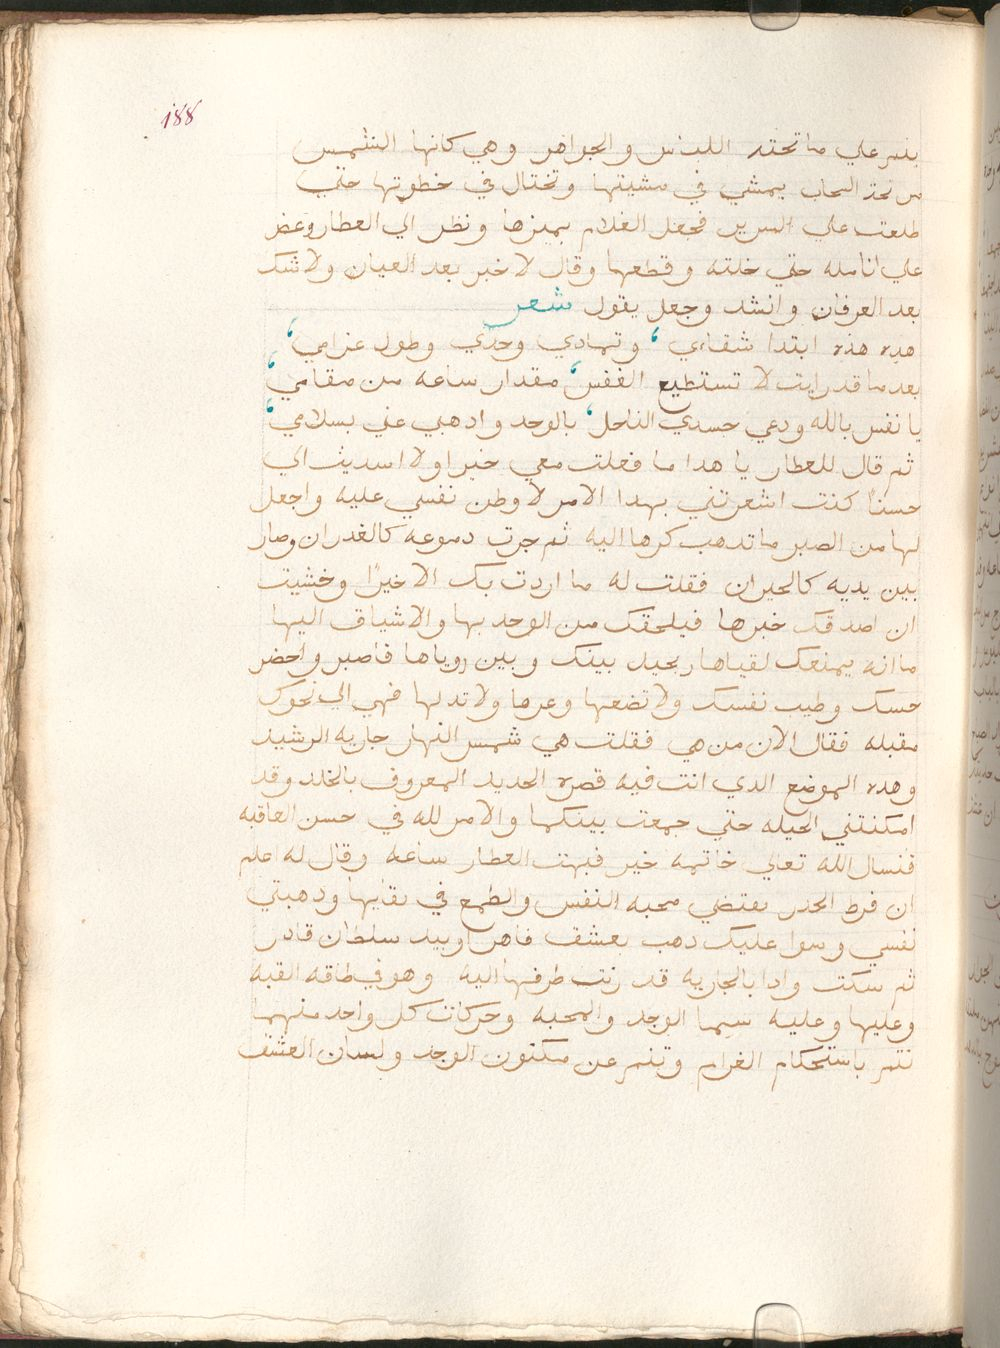 188
ينم علي ما تحته اللباس والجواهر وهي كانها الشمس
من تحت السحاب يمشي في مشيتها وتختال في خطوتها حتي
طلعت علي السرير فجعل الغلام يميزها ونظر الي العطار وعض
علي انامله حتي خلته وقطعها وقال لا خبر بعد العيان ولا شك
بعد العرفان وانشد وجعل يقول شعر
هده هذه ابتدا شقاءي ، وتمادي وجدي وطول غرامي ،
بعد ما قد رايت لا تستطيع النفس ، مقدار ساعه من مقامي ،
يا نفس بالله ودعي جسدي الناحل ، بالوجد وادهبي عني بسلامي ،
ثم قال للعطار يا هدا ما فعلت معي خيرا ولا اسديت الي
حسنا كنت اشعرتني بهدا الامر لاوطن نفسي عليه واجعل
لها من الصبر ما تدهب كرها اليه ثم جرت دموعه كالغدران وصار
بين يديه كالحيران فقلت له ما اردت بك الا خيرًا وخشيت
ان اصدقك خبرها فيلحقك من الوجد بها والاشياق اليها
ما انه يمنعك لقياها ويحيد بينك وبين روياها فاصبر واحضر
حسك وطيب نفسك ولا تضعها وعرها ولا تدلها فهي الي نحوك
مقبله فقال الان من هي فقلت هي شمس النهار جاريه الرشيد
وهده الموضع الدي انت فيه قصره الجديد المعروف بالخلد وقد
امكنتني الحيله حتي جمعت بينكما والامر لله في حسن العاقبه
فنسال الله تعالي خاتمه خير فبهت العطار ساعه وقال له اعلم
ان فرط الحدر يقتضي محبه النفس والطمع في بقايها ودهبتي
نفسي وسوا عليك دهب بعشق قاهر اوبيد سلطان قادر
ثم سكت وادا بالجاريه قد رنت طرفها اليه وهو في طاقه القبه
وعليها وعليه سيما الوجد والمحبه وحركات كل واحد منهما
تنم باستحكام الغرام وتنم عن مكنون الوجد ولسان العشق